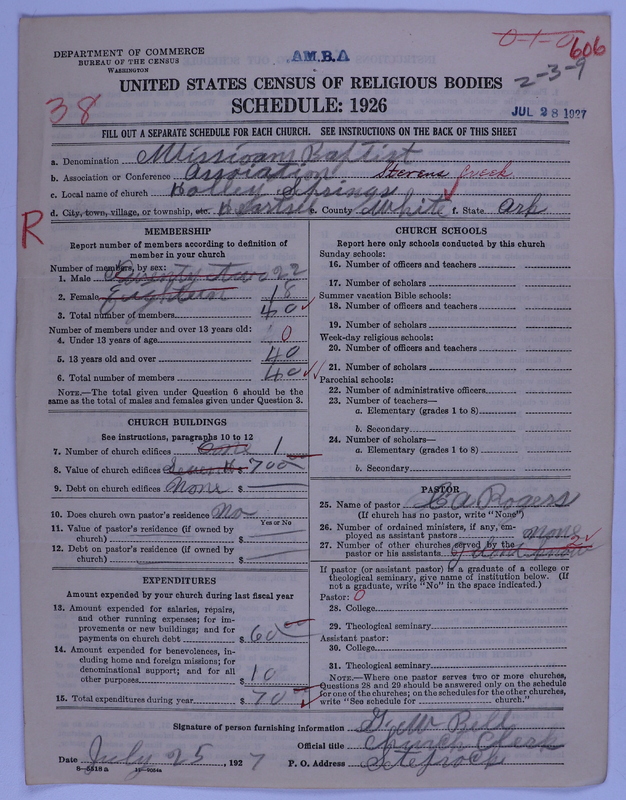 DEPARTMENT OF COMMERCE
BUREAU OF THE CENSUS
WASHINGTON
A.M.B.A
0-1-0
606
2-3-9
UNITED STATES CENSUS OF RELIGIOUS BODIES
38
SCHEDULE: 1926
JUL 28 1927
FILL OUT A SEPARATE SCHEDULE FOR EACH CHURCH. SEE INSTRUCTIONS ON THE BACK OF THIS SHEET
a. Denomination Missionary Baptist
b. Association or Conference Association Stevens Creek
c. Local name of church Holley Springs
d. City, town, village, or township, etc. e. County White f. State Ark
R
MEMBERSHIP
Report number of members according to definition of
member in your church
Number of members, by sex:
1. Male Twenty two 22
2. Female Eighteen 18
3. Total number of members 40
Number of members under and over 13 years old:
4. Under 13 years of age 0
5. 13 years old and over 40
6. Total number of members 40
NOTE.—The total given under Question 6 should be
same as the total of males and females given under Question 3.
CHURCH BUILDINGS
See instructions, paragraphs 10 to 12
7. Number of church edifices one 1
8. Value of church edifices 700
9. Debt on church edifices None $
10. Does church own pastor's residence? No
Yes or No
11. Value of pastor's residence (if owned by
church) $
12. Debt on pastor's residence (if owned by
church) $
EXPENDITURES
Amount expended by your church during last fiscal year
13. Amount expended for salaries, repairs,
and other running expenses; for im-
provements or new buildings; and for
payments on church debt $ 60
14. Amount expended for benevolences, in-
cluding home and foreign missions; for
denominational support; and for all
other purposes $ 10
15. Total expenditures during year $ 70
CHURCH SCHOOLS
Report here only schools conducted by this church
Sunday schools:
16. Number of officers and teachers
17. Number of scholars
Summer vacation Bible schools:
18. Number of officers and teachers
19. Number of scholars
Week-day religious schools:
20. Number of officers and teachers
21. Number of scholars
Parochial schools:
22. Number of administrative officers
23. Number of teachers—
a. Elementary (grades 1 to 8)
b. Secondary
24. Number of scholars—
a. Elementary (grades 1 to 8)
b. Secondary
PASTOR
25. Name of pastor A Rogers
(If church has no pastor, write "None")
26. Number of ordained ministers, if any, em-
ployed as assistant pastors none
27. Number of other churches served by the
pastor or his assistants
If pastor (or assistant pastor) is a graduate of a college or
theological seminary, give name of institution below. (If
not a graduate, write "No" in the space indicated.)
Pastor: 0
28. College
29. Theological seminary
Assistant pastor:
30. College
31. Theological seminary
NOTE.—Where one pastor serves two or more churches,
Questions 28 and 29 should be answered only on the schedule
for one of the churches; on the schedules for the other churches,
write "See schedule for church."
Signature of person furnishing information
Official title Church Clerk
Date July 25, 1927 P. O. Address Steprock
8—5518a